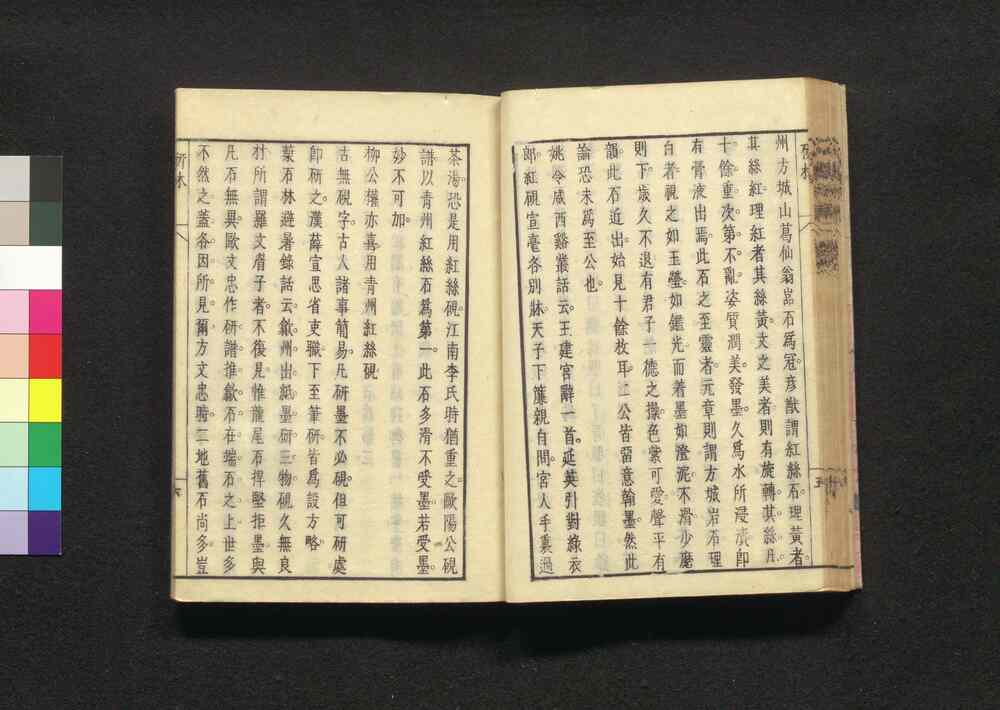 州方城山葛仙翁嵓石爲冠彦猷謂紅絲石理黃者
其絲紅理紅者其絲黃文之美者則有旋轉其絲凡
十餘重次第不亂姿質潤美發墨久爲水所浸漬即
有膏液出焉此石之至靈者元章則謂方城岩石理
白者視之如玉瑩如鑑光而着墨如澄泥不滑少磨
則下歲久不退有君子德之操色紫可愛聲平有
韻此石近出始見十餘枚耳二公皆留意翰墨然此
論恐未爲至公也
姚令威西谿叢話云王建宮辭一首延英引對綠衣
郎紅硯宣毫各別牀天子下簾親自問宮人手裏過
茶湯恐是用紅絲硯江南李氏時猶重之歐陽公硯
譜以青州紅絲石爲第一此石多滑不受墨若受墨
妙不可加
柳公權亦喜用青州紅絲硯
古無硯字古人諸事簡易凡研墨不必硯但可研處
即研之漢薛宣思省吏職下至筆研皆爲設方略
葉石林避暑錄話云歙州出紙墨研三物硯久無良
材所謂羅文眉子者不復見惟龍尾石捍堅拒墨與
凡石無異歐文忠作研譜推歙石在端石之上世多
不然之蓋各因所見爾方文忠時二地舊石尚多豈
研林
六